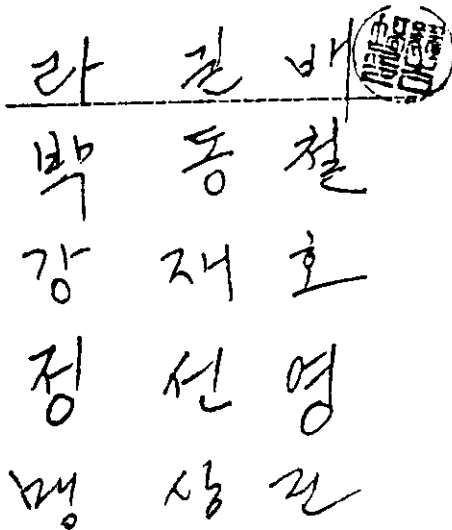 라 권 배
박 동 철
강 재 호
정 선 영
맹 상 진